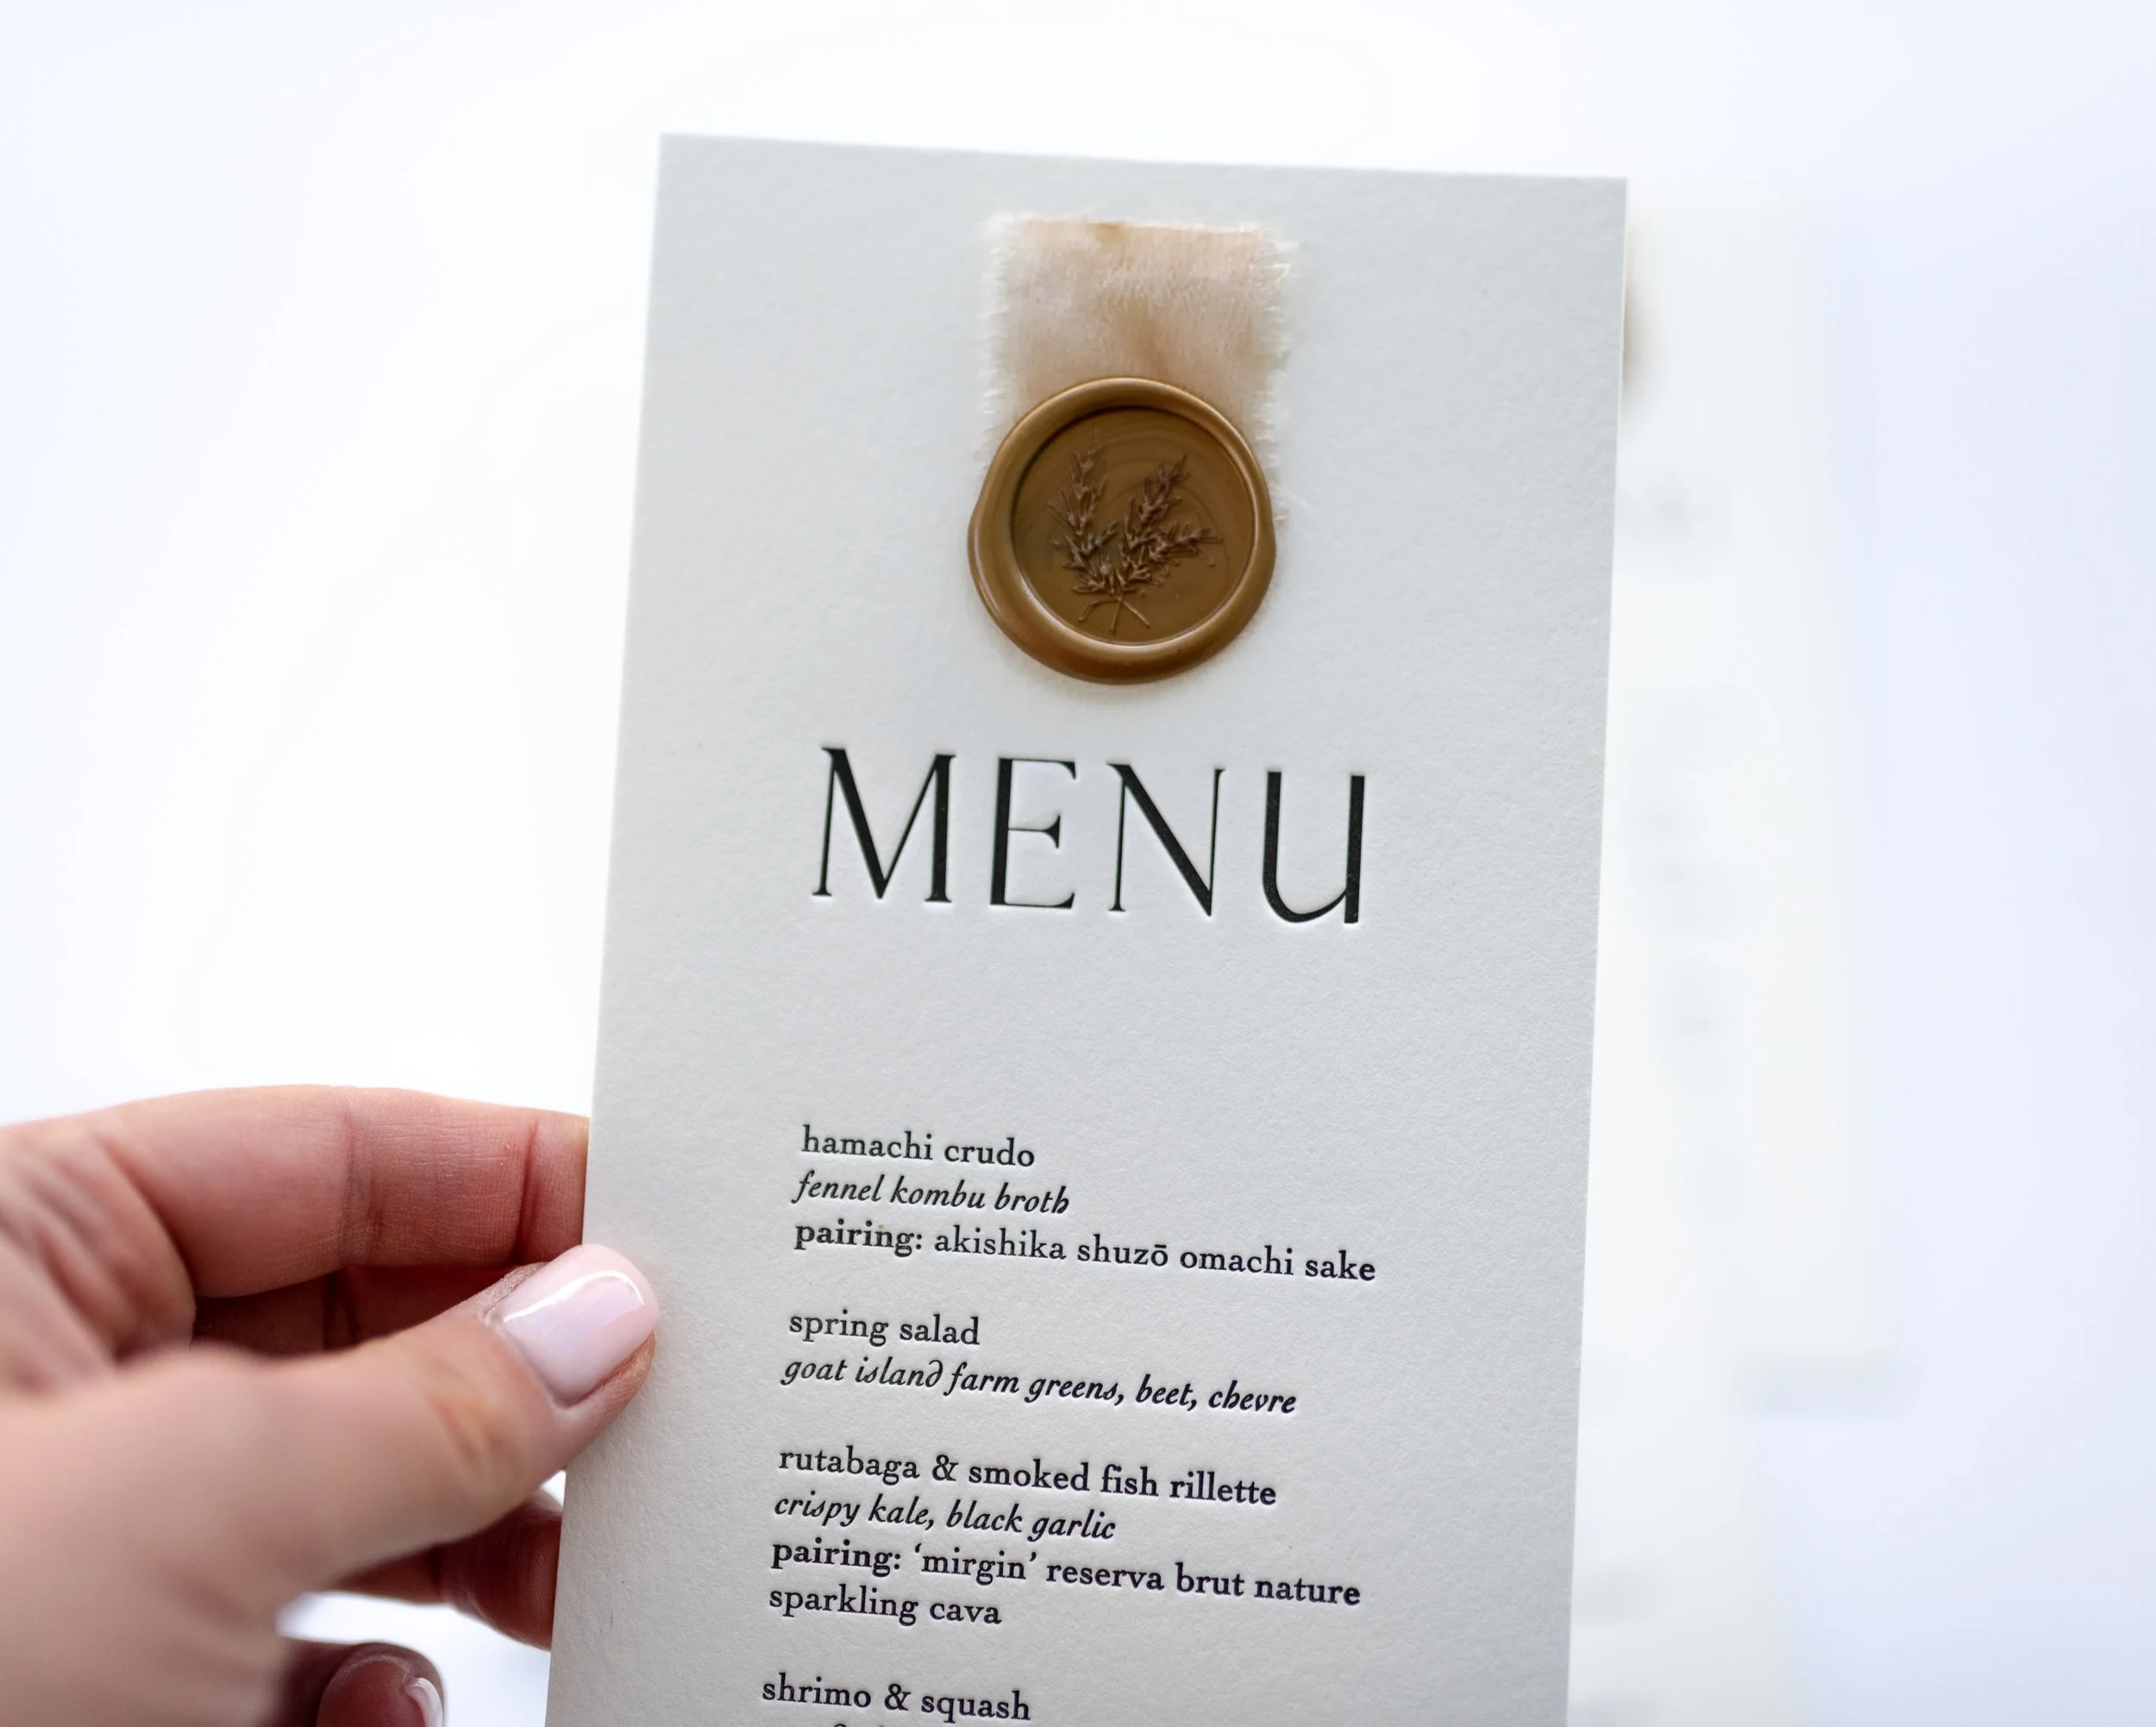 MENU
hamachi crudo
fennel kombu broth
pairing: akishika shuzō omachi sake
spring salad
goat island farm greens, beet, chevre
rutabaga & smoked fish rillette
crispy kale, black garlic
pairing: ‘mirgin’ reserva brut nature
sparkling cava
shrimo & squash